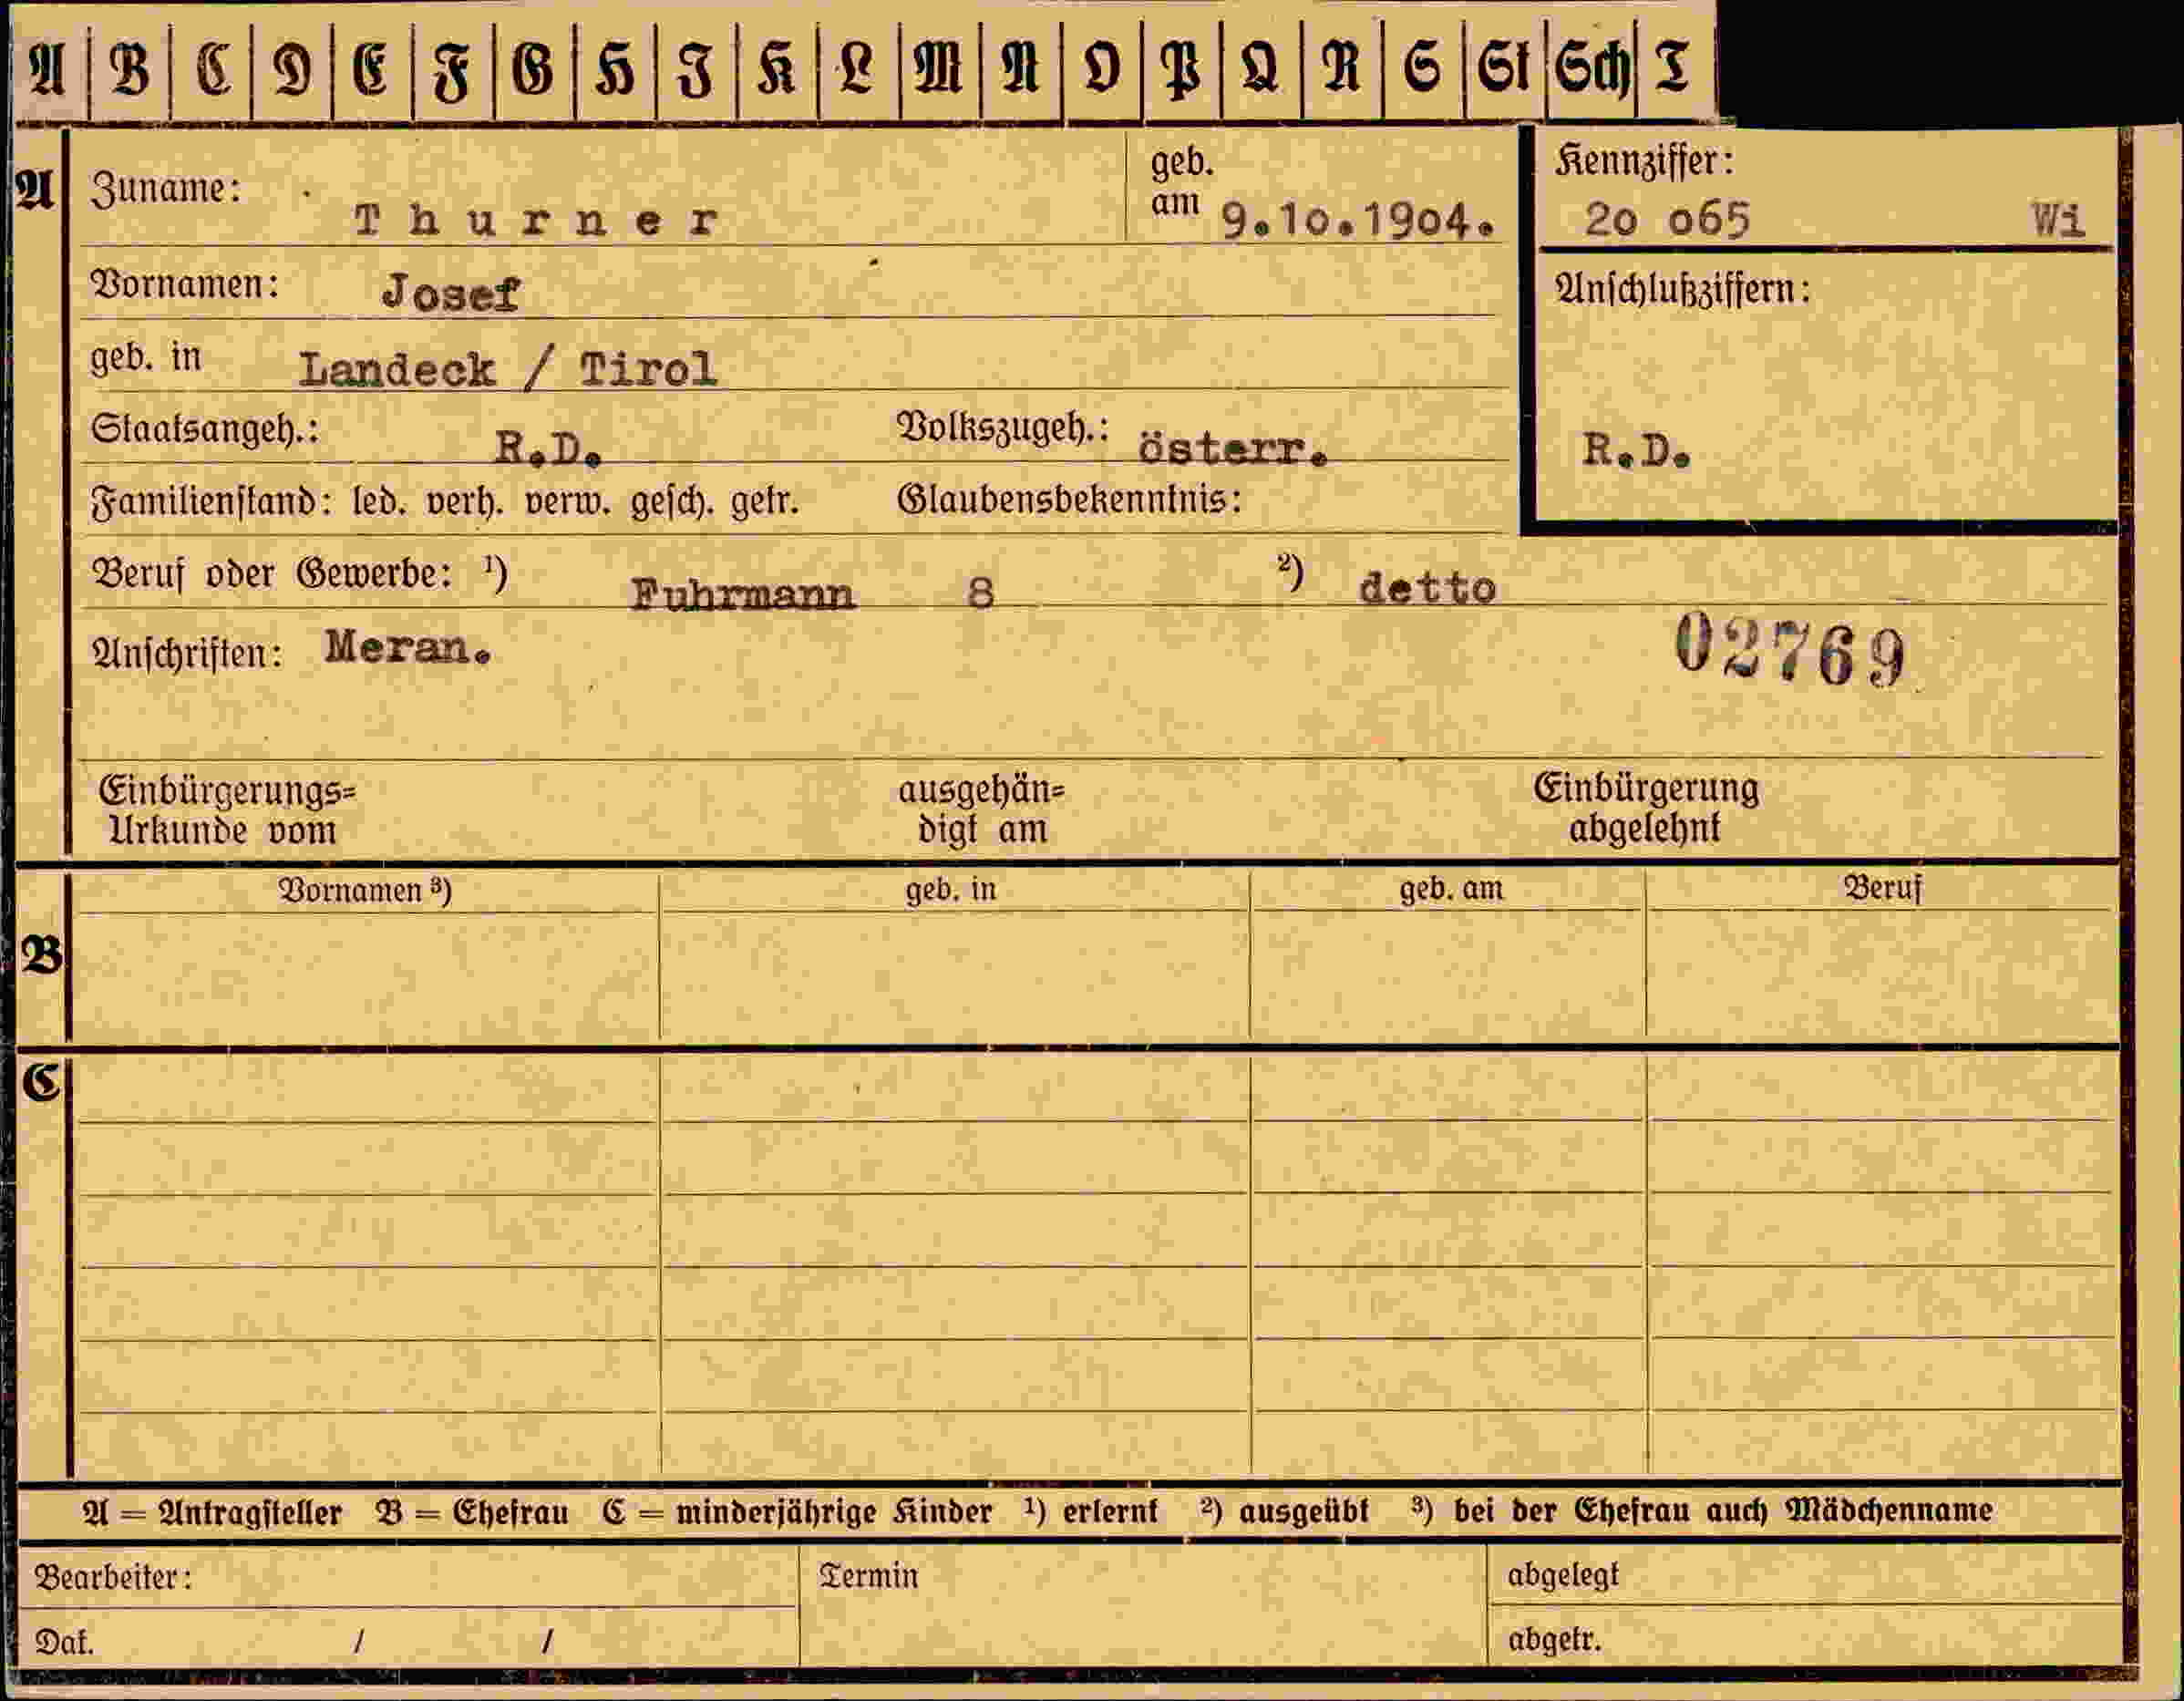 A B C D E F G H I K L M N O P Q R S St Sch T
A Zuname: Thurner geb. am 9.10.1904. Kennziffer: 20 065 Wi
Vornamen: Josef Anschlußziffern:
geb. in Landeck / Tirol
Staatsangeh.: R.D. Volkszugeh.: österr. R.D.
Familienstand: led. verh. verw. gesch. getr. Glaubensbekenntnis:
Beruf oder Gewerbe: 1) Fuhrmann 8 2) detto
Anschriften: Meran. 02769
Einbürgerungs= ausgehän= Einbürgerung
Urkunde vom digt am abgelehnt
Vornamen 3) geb. in geb. am Beruf
B
C
A = Antragsteller B = Ehefrau C = minderjährige Kinder 1) erlernt 2) ausgeübt 3) bei der Ehefrau auch Mädchenname
Bearbeiter: Termin abgelegt
Dat. / / abgetr.